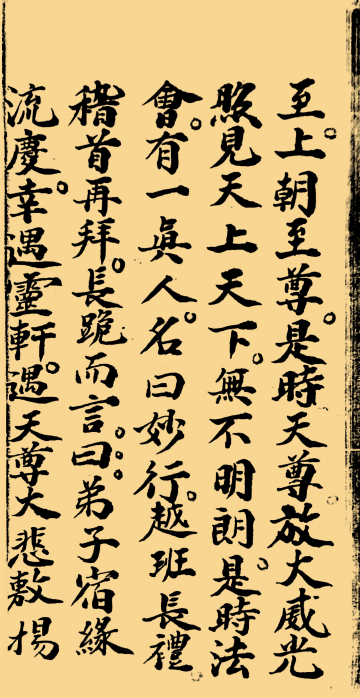 至上朝至尊。是時天尊放大威光
照見天上天下。無不明朗。是時法
會。有一眞人。名曰妙行。越班長禮。
稽首再拜。長跪而言。曰。弟子宿緣
流慶。幸遇靈軒。遇天尊大悲敷揚